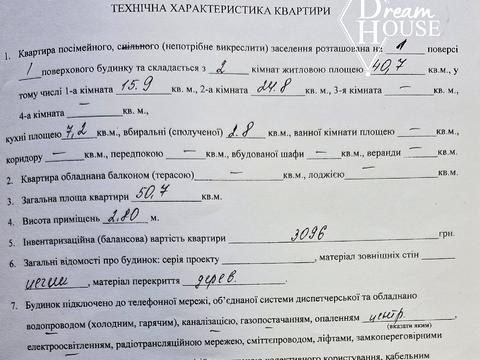 Dream
HOUSE
ТЕХНІЧНА ХАРАКТЕРИСТИКА КВАРТИРИ
1. Квартира посімейного, спільного (непотрібне викреслити) заселення розташована на 1 поверсі
1 поверхового будинку та складається з 2 кімнат житловою площею 40,7 кв.м., у
тому числі 1-а кімната 15.9 кв. м., 2-а кімната 24.8 кв. м., 3-я кімната — кв. м.,
4-а кімната — кв. м.,
кухні площею 7,2 кв.м., вбиральні (сполученої) 2.8 кв.м., ванної кімнати площею — кв.м.,
коридору — кв.м., передпокою — кв.м., вбудованої шафи — кв.м., веранди — кв.м.
2. Квартира обладнана балконом (терасою) — кв.м., лоджією — кв.м.
3. Загальна площа квартири 50,7 кв.м.
4. Висота приміщень 2,80 м.
5. Інвентаризаційна (балансова) вартість квартири 3096 грн.
6. Загальні відомості про будинок: серія проекту , матеріал зовнішніх стін
, матеріал перекриття дерев.
7. Будинок підключено до телефонної мережі, об'єднаної системи диспетчерської та обладнано
водопроводом (холодним, гарячим), каналізацією, газопостачанням, опаленням центр
(вказати яким)
електроосвітленням, радіотрансляційною мережею, сміттєпроводом, ліфтами, замкопереговорними
колективного користування, кабельним